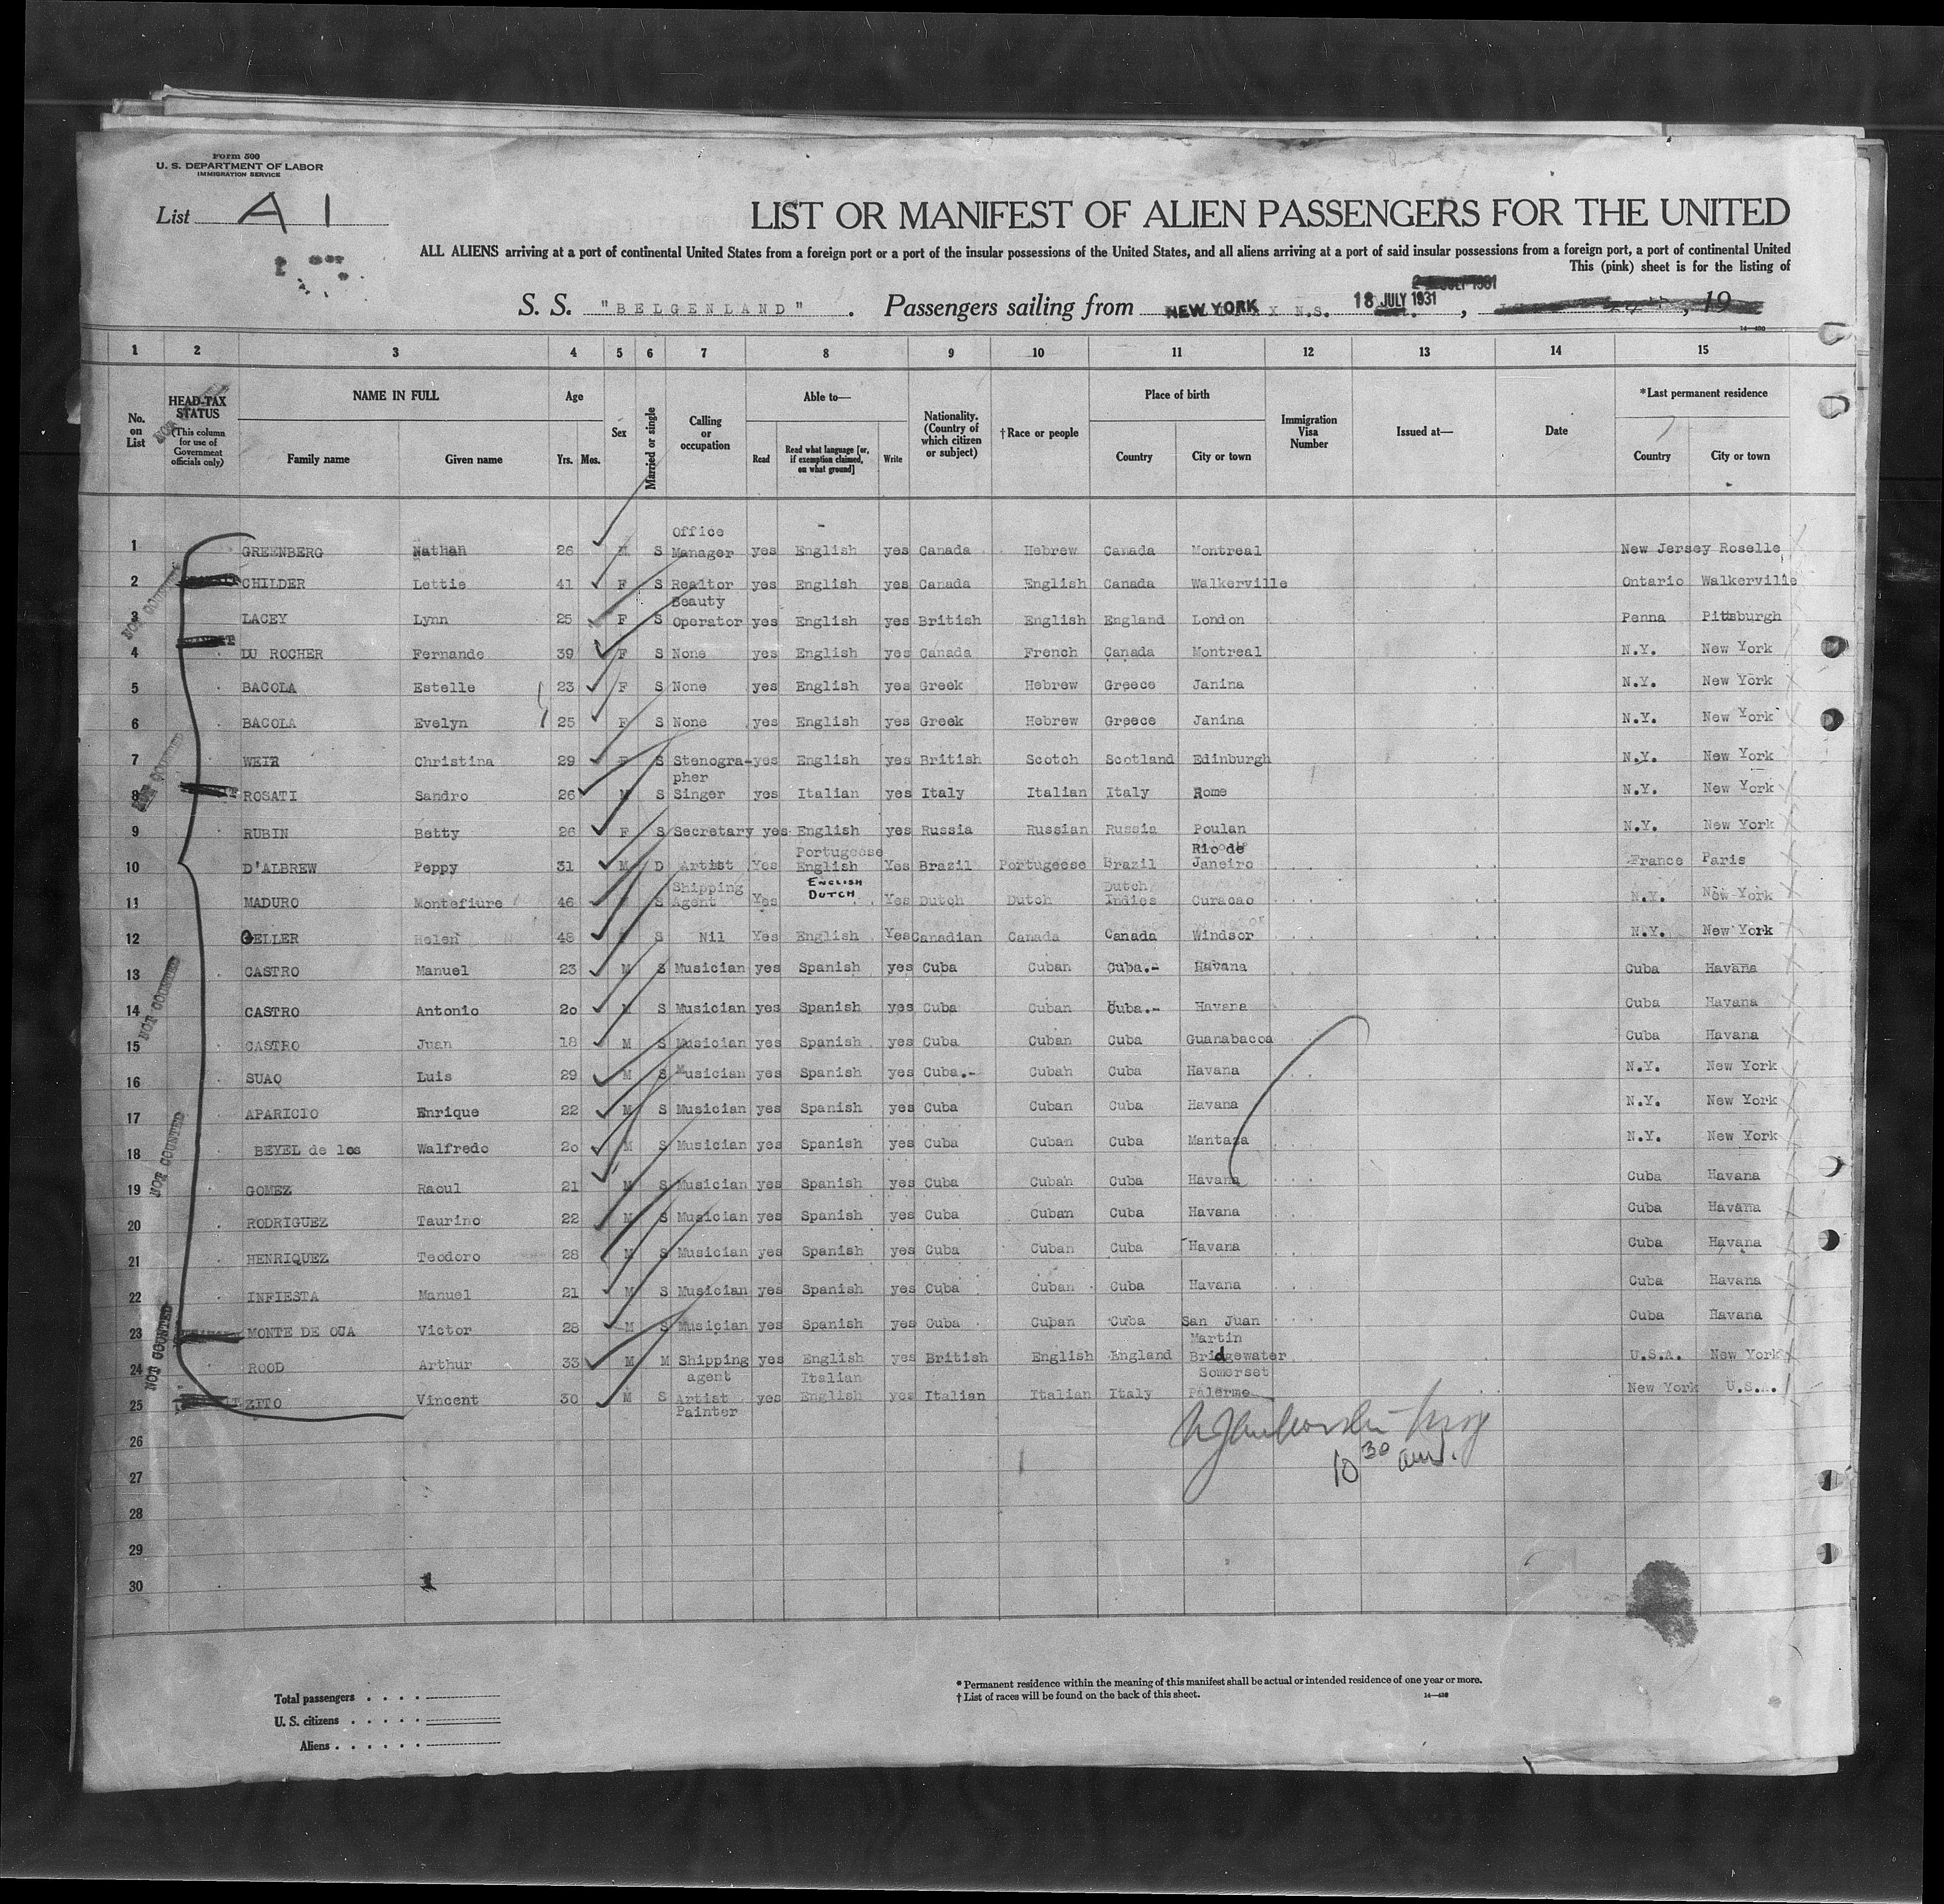 Form 500
U. S. DEPARTMENT OF LABOR
IMMIGRATION SERVICE
List A 1
LIST OR MANIFEST OF ALIEN PASSENGERS FOR THE UNITED
ALL ALIENS arriving at a port of continental United States from a foreign port or a port of the insular possessions of the United States, and all aliens arriving at a port of said insular possessions from a foreign port, a port of continental United
This (pink) sheet is for the listing of
S. S. "BELGENLAND" . Passengers sailing from NEW YORK X N.S. 18 JULY 1931 , , 19
14—430
1 2 3 4 5 6 7 8 9 10 11 12 13 14 15
No. on List
HEAD-TAX STATUS
(This column for use of Government officials only)
NAME IN FULL
Family name Given name
Age
Yrs. Mos.
Sex
Married or single
Calling or occupation
Able to—
Read Read what language [or, if exemption claimed, on what ground] Write
Nationality. (Country of which citizen or subject)
†Race or people
Place of birth
Country City or town
Immigration Visa Number
Issued at—
Date
*Last permanent residence
Country City or town
1 GREENBERG Nathan 26 M S Office Manager yes English yes Canada Hebrew Canada Montreal New Jersey Roselle
2 CHILDER Lettie 41 F S Realtor yes English yes Canada English Canada Walkerville Ontario Walkerville
3 LACEY Lynn 25 F S Beauty Operator yes English yes British English England London Penna Pittsburgh
4 DU ROCHER Fernande 39 F S None yes English yes Canada French Canada Montreal N.Y. New York
5 BACOLA Estelle 23 F S None yes English yes Greek Hebrew Greece Janina N.Y. New York
6 BACOLA Evelyn 25 F S None yes English yes Greek Hebrew Greece Janina N.Y. New York
7 WEIR Christina 29 F S Stenographer yes English yes British Scotch Scotland Edinburgh N.Y. New York
8 ROSATI Sandro 26 M S Singer yes Italian yes Italy Italian Italy Rome N.Y. New York
9 RUBIN Betty 26 F S Secretary yes English yes Russia Russian Russia Poulan N.Y. New York
10 D'ALBREW Peppy 31 M D Artist Yes Portugeese English Yes Brazil Portugeese Brazil Rio de Janeiro France Paris
11 MADURO Montefiure 46 S Shipping Agent Yes ENGLISH DUTCH Yes Dutch Dutch Dutch Indies Curacao N.Y. New York
12 OELLER Helen 48 S Nil Yes English Yes Canadian Canada Canada Windsor N.Y. New York
13 CASTRO Manuel 23 M S Musician yes Spanish yes Cuba Cuban Cuba.- Havana Cuba Havana
14 CASTRO Antonio 20 M S Musician yes Spanish yes Cuba Cuban Cuba.- Havana Cuba Havana
15 CASTRO Juan 18 M S Musician yes Spanish yes Cuba Cuban Cuba Guanabacoa Cuba Havana
16 SUAO Luis 29 M S Musician yes Spanish yes Cuba.- Cuban Cuba Havana N.Y. New York
17 APARICIO Enrique 22 M S Musician yes Spanish yes Cuba Cuban Cuba Havana N.Y. New York
18 BEYEL de los Walfredo 20 M S Musician yes Spanish yes Cuba Cuban Cuba Mantaza N.Y. New York
19 GOMEZ Raoul 21 M S Musician yes Spanish yes Cuba Cuban Cuba Havana Cuba Havana
20 RODRIGUEZ Taurino 22 M S Musician yes Spanish yes Cuba Cuban Cuba Havana Cuba Havana
21 HENRIQUEZ Teodoro 28 M S Musician yes Spanish yes Cuba Cuban Cuba Havana Cuba Havana
22 INFIESTA Manuel 21 M S Musician yes Spanish yes Cuba Cuban Cuba Havana Cuba Havana
23 MONTE DE OUA Victor 28 M S Musician yes Spanish yes Cuba Cuban Cuba San Juan Martin Cuba Havana
24 ROOD Arthur 33 M M Shipping agent yes English yes British English England Bridgewater Somerset U.S.A. New York
25 ZITO Vincent 30 M S Artist Painter yes Italian English yes Italian Italian Italy Palermo New York U.S.A.
26
27
28
29
30
NOT COUNTED
NOT COUNTED
NOT COUNTED
NOT COUNTED
NOT COUNTED
10 30 am.
1
Total passengers
U. S. citizens
Aliens
* Permanent residence within the meaning of this manifest shall be actual or intended residence of one year or more.
† List of races will be found on the back of this sheet.
14—430